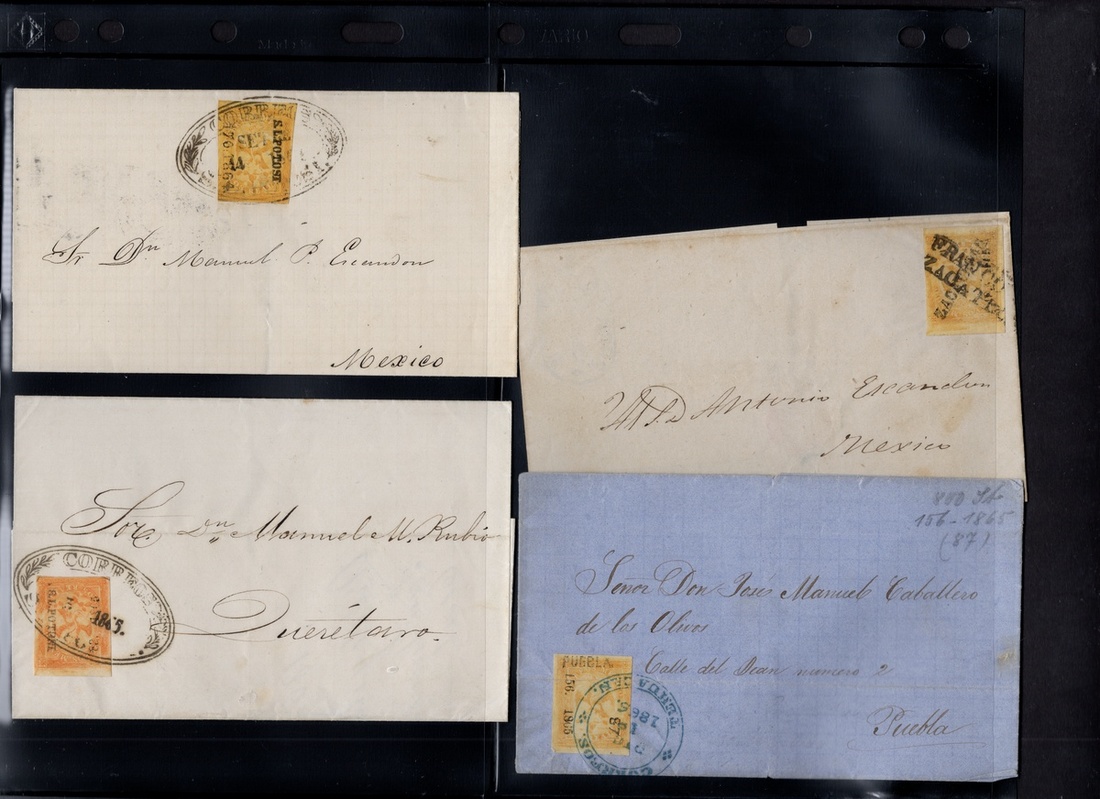 SET
14
S.L.POTOSI
76 1864
Sr Dn Manuel P. Escandon
Mexico
FRANCO
ZACAT
S. D. Antonio Escandon
Mexico
Sor. Dn. Manuel M. Rubio
CORREOS
1865.
S.L.POTOSI
Querétaro.
156-1865
(87)
Señor Don Jose Manuel Caballero
de los Olivos
Calle del Dean numero 2
Puebla
PUEBLA
156. 1865
87
CORREOS.
1865